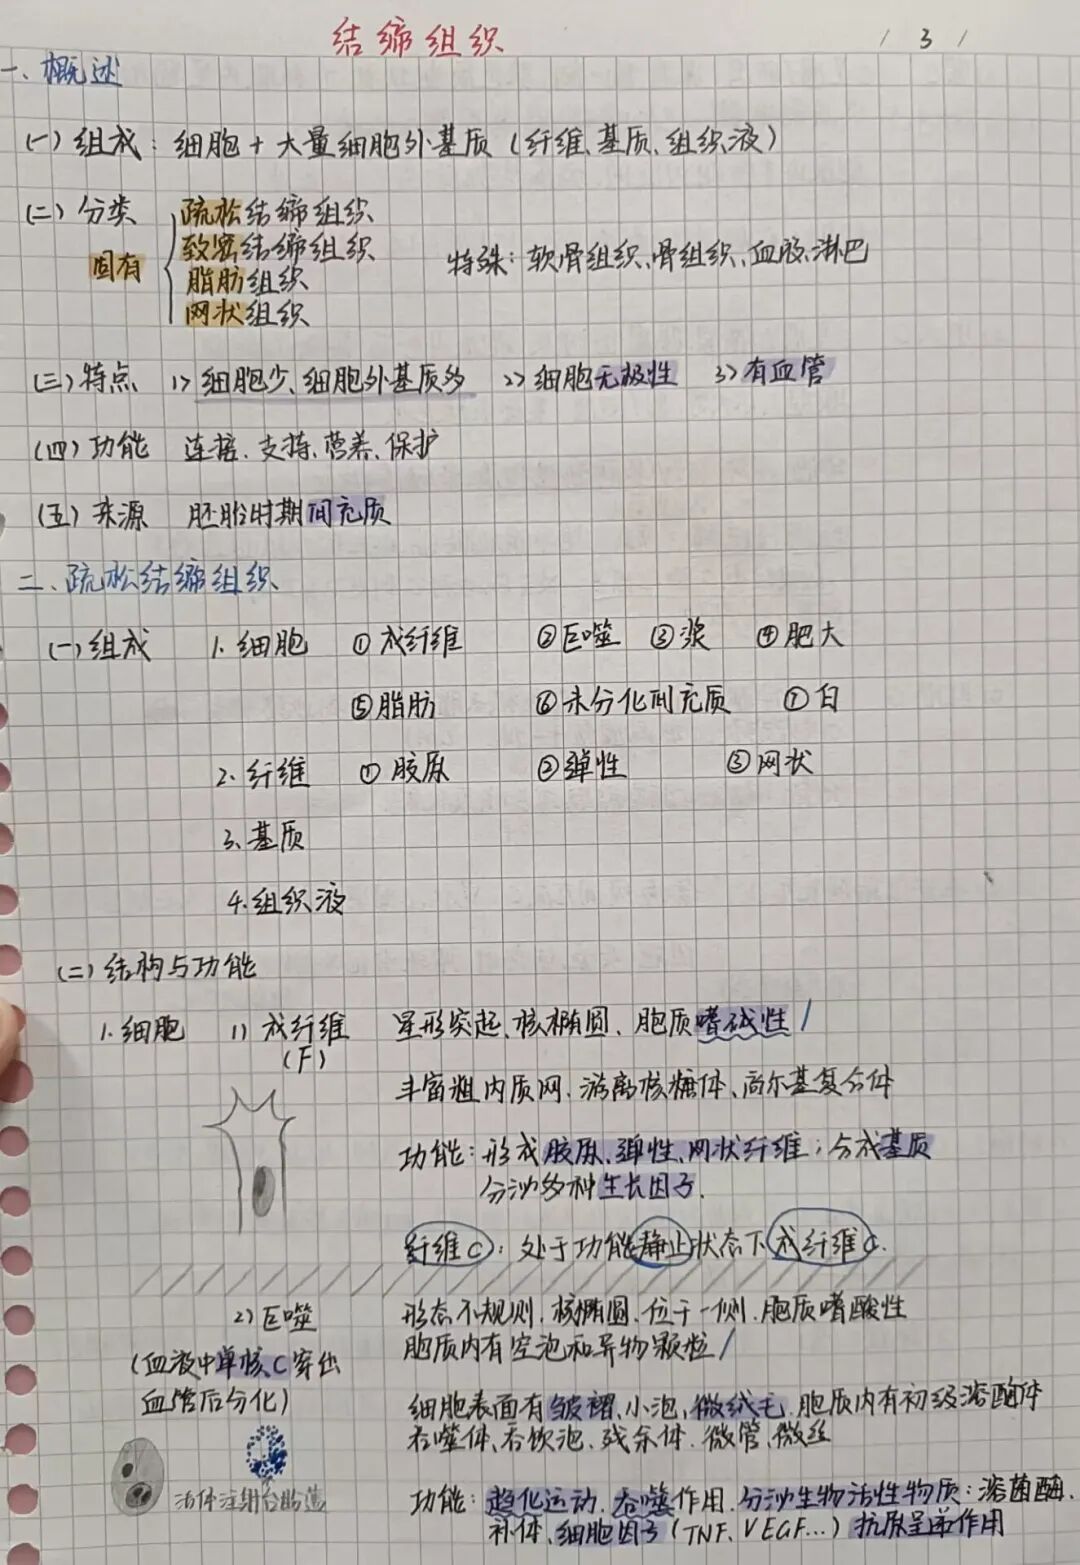 结缔组织
/ 3 /
一、概述
(一)组成：细胞+大量细胞外基质(纤维、基质、组织液)
(二)分类
固有
疏松结缔组织
致密结缔组织
脂肪组织
网状组织
特殊：软骨组织、骨组织、血液、淋巴
(三)特点 1>细胞少、细胞外基质多 2>细胞无极性 3>有血管
(四)功能 连接、支持、营养、保护
(五)来源 胚胎时期间充质
二、疏松结缔组织
(一)组成 1.细胞 ①成纤维 ②巨噬 ③浆 ④肥大
⑤脂肪 ⑥未分化间充质 ⑦白
2.纤维 ①胶原 ②弹性 ③网状
3.基质
4.组织液
(二)结构与功能
1.细胞 1)成纤维 星形突起、核椭圆、胞质嗜碱性/
(F)
丰富粗内质网、游离核糖体、高尔基复合体
功能：形成胶原、弹性、网状纤维；分成基质
分泌多种生长因子.
纤维C：处于功能静止状态下成纤维C.
2)巨噬 形态不规则、核椭圆、位于一侧、胞质嗜酸性
胞质内有空泡和异物颗粒/
(血液中单核C穿出
血管后分化)
细胞表面有皱褶、小泡、微绒毛、胞质内有初级溶酶体
吞噬体、吞饮泡、残余体、微管、微丝
活体注射台盼蓝
功能：趋化运动、吞噬作用、分泌生物活性物质：溶菌酶、
补体、细胞因子(TNF、VEGF...)抗原呈递作用